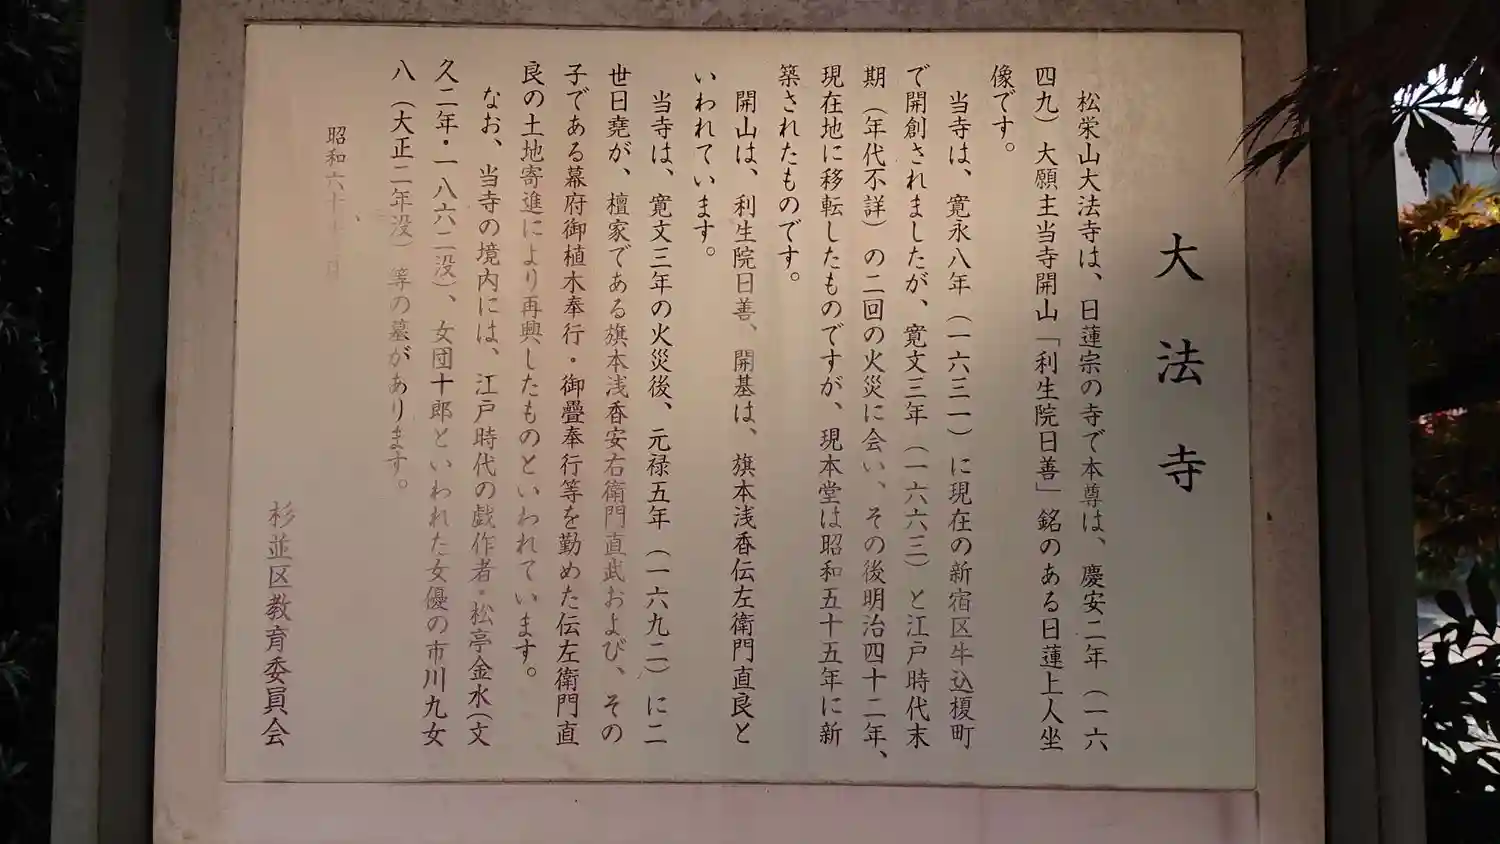 大法寺
松栄山大法寺は、日蓮宗の寺で本尊は、慶安二年（一六
四九）大願主当寺開山「利生院日善」銘のある日蓮上人坐
像です。
当寺は、寛永八年（一六三一）に現在の新宿区牛込榎町
で開創されましたが、寛文三年（一六六三）と江戸時代末
期（年代不詳）の二回の火災に会い、その後明治四十二年、
現在地に移転したものですが、現本堂は昭和五十五年に新
築されたものです。
開山は、利生院日善、開基は、旗本浅香伝左衛門直良と
いわれています。
当寺は、寛文三年の火災後、元禄五年（一六九二）に二
世日堯が、檀家である旗本浅香安右衛門直武および、その
子である幕府御植木奉行・御畳奉行等を勤めた伝左衛門直
良の土地寄進により再興したものといわれています。
なお、当寺の境内には、江戸時代の戯作者・松亭金水（文
久二年・一八六二没）、女団十郎といわれた女優の市川九女
八（大正二年没）等の墓があります。
昭和六十
杉並区教育委員会